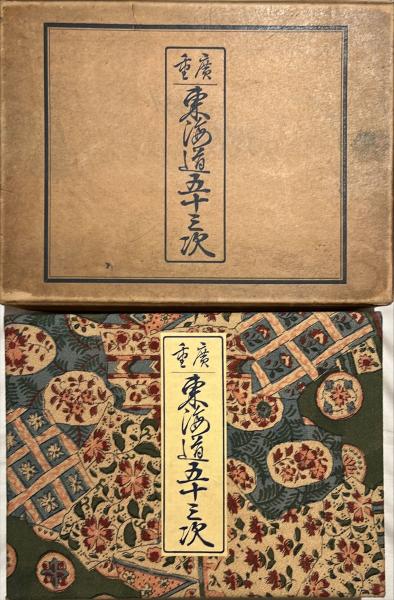 廣重
東海道五十三次
廣重
東海道五十三次